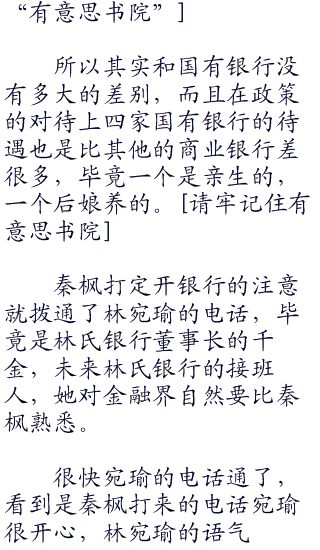 “有意思书院”]
所以其实和国有银行没
有多大的差别，而且在政策
的对待上四家国有银行的待
遇也是比其他的商业银行差
很多，毕竟一个是亲生的，
一个后娘养的。[请牢记住有
意思书院]
秦枫打定开银行的注意
就拨通了林宛瑜的电话，毕
竟是林氏银行董事长的千
金，未来林氏银行的接班
人，她对金融界自然要比秦
枫熟悉。
很快宛瑜的电话通了，
看到是秦枫打来的电话宛瑜
很开心，林宛瑜的语气